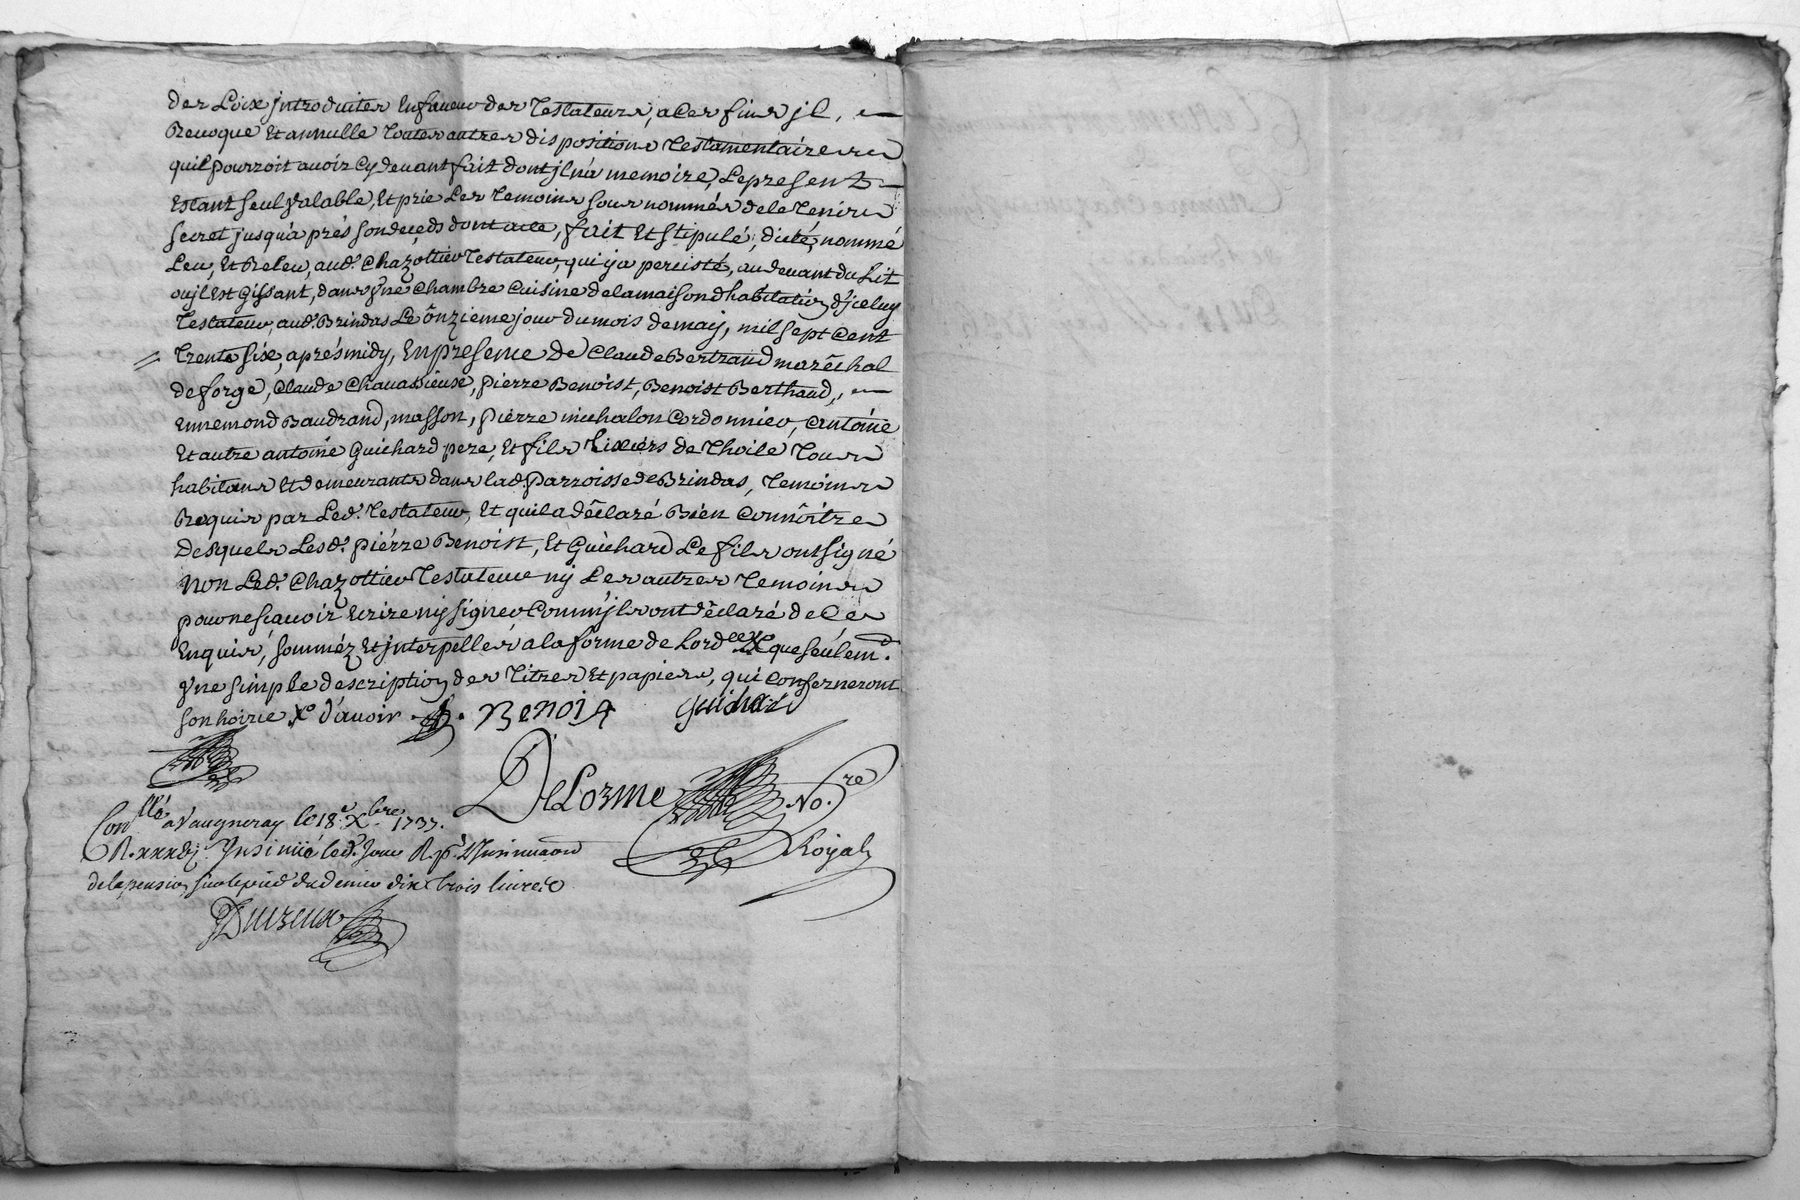 des Loix jntroduites Enfaveur des Testateurs, aCes fins jl,
Revoque Et annulle Toutes autres dispositions Testamentaires
quil pourroit avoir Cy devant fait dont jl na memoire, Le present
Estant seul valable, Et prie Les Temoins sous nommés de le Tenir
secret jusqu'a prés son decéds dont acte, fait Et stipulé, dicté, nommé
Leu, Et Releu, aud. Chazottier Testateur, qui ya percisté, au devant du Lit
ou jl Est Gissant, dans vne Chambre Cuisine de la maison d'habitation d'jceluy
Testateur, aud. Brindas Le ônzieme jour du mois de maij, mil sept Cent
Trente six, aprés midy, En presence de Claude Bertrand marêchal
de forge, Claude Chavassieux, pierre Benoist, Benoist Berthaud,
Ennemond Baudrand, masson, pierre michalon Cordonnier, antoine
Et autre antoine Guichard pere, Et fils Tixiers de Thoile Tous
habitans Et demeurants dans lad. Parroisse de Brindas, Temoins
Requis par Led. Testateur, Et quil a dêclaré Bien Connôitre
Desquels Lesd. piérre Benoist, Et Guichard Le fils ont signé
Non Led. Chazottier Testateur nij Les autres Temoins
pour ne scavoir Ecrire nij signer Comm'jls ont dêclaré de Ce
Enquis, somméz Et jnterpellés a la forme de Lord.ce X que seulem.t
vne simple description des Titres Et papiers, qui Conserneront
son hoirie X.o d'avoir. Benoit Guichard
DeLorme No.re
Con.llé a Vaugneray le 18.e Xbre 1737.
Royal
R. Jnsinué led. Jour R.
de la pension sur le pied du denier dix trois livres
Duireux